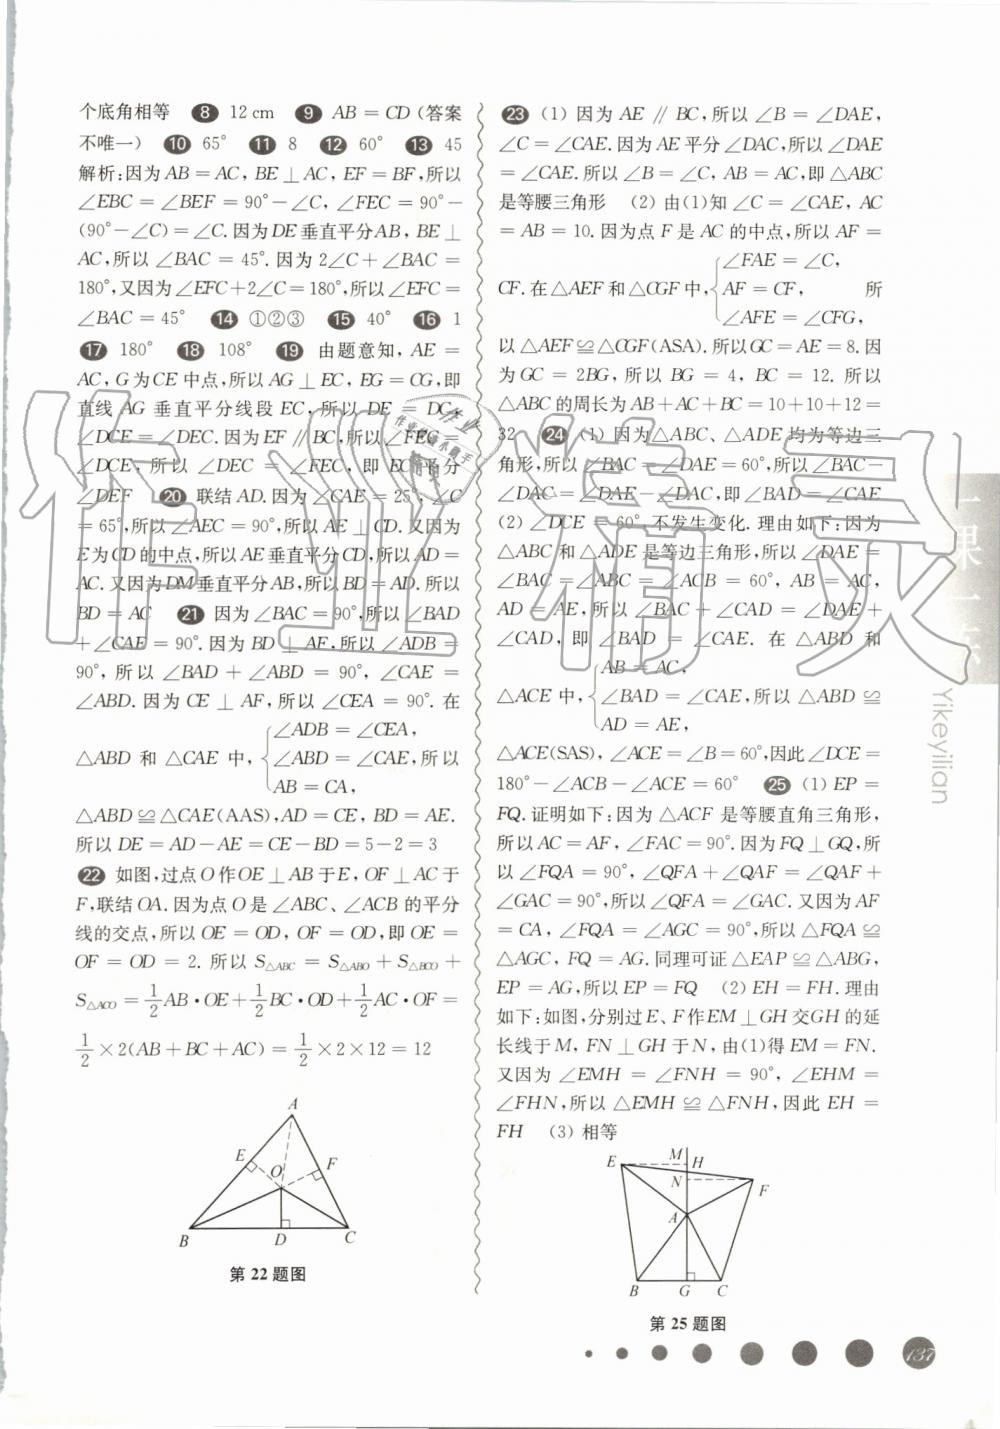 个底角相等 8 12 cm 9 AB = CD (答案
不唯一) 10 65° 11 8 12 60° 13 45
解析:因为 AB = AC, BE ⊥ AC, EF = BF,所以
∠EBC = ∠BEF = 90° - ∠C, ∠FEC = 90° -
(90° - ∠C) = ∠C. 因为 DE 垂直平分 AB, BE ⊥
AC,所以 ∠BAC = 45°. 因为 2∠C + ∠BAC =
180°,又因为 ∠EFC + 2∠C = 180°,所以 ∠EFC =
∠BAC = 45° 14 ①②③ 15 40° 16 1
17 180° 18 108° 19 由题意知, AE =
AC, G 为 CE 中点,所以 AG ⊥ EC, EG = CG,即
直线 AG 垂直平分线段 EC,所以 DE = DC,
∠DCE = ∠DEC. 因为 EF ∥ BC,所以 ∠FEC =
∠DCE,所以 ∠DEC = ∠FEC,即 EC 平分
∠DEF 20 联结 AD. 因为 ∠CAE = 25°, ∠C
= 65°,所以 ∠AEC = 90°,所以 AE ⊥ CD. 又因为
E 为 CD 的中点,所以 AE 垂直平分 CD,所以 AD =
AC. 又因为 DM 垂直平分 AB,所以 BD = AD. 所以
BD = AC 21 因为 ∠BAC = 90°,所以 ∠BAD
+ ∠CAE = 90°. 因为 BD ⊥ AF,所以 ∠ADB =
90°,所以 ∠BAD + ∠ABD = 90°, ∠CAE =
∠ABD. 因为 CE ⊥ AF,所以 ∠CEA = 90°. 在
∠ADB = ∠CEA,
△ABD 和 △CAE 中, ∠ABD = ∠CAE,所以
AB = CA,
△ABD ≌ △CAE(AAS), AD = CE, BD = AE.
所以 DE = AD - AE = CE - BD = 5 - 2 = 3
22 如图,过点 O 作 OE ⊥ AB 于 E, OF ⊥ AC 于
F,联结 OA. 因为点 O 是 ∠ABC、∠ACB 的平分
线的交点,所以 OE = OD, OF = OD,即 OE =
OF = OD = 2. 所以 S△ABC = S△ABO + S△BCO +
S△ACO = 1/2 AB·OE + 1/2 BC·OD + 1/2 AC·OF =
1/2 × 2(AB + BC + AC) = 1/2 × 2 × 12 = 12
A
E
O
F
B
D
C
第 22 题图
23 (1) 因为 AE ∥ BC,所以 ∠B = ∠DAE,
∠C = ∠CAE. 因为 AE 平分 ∠DAC,所以 ∠DAE
= ∠CAE. 所以 ∠B = ∠C, AB = AC,即 △ABC
是等腰三角形 (2) 由(1)知 ∠C = ∠CAE, AC
= AB = 10. 因为点 F 是 AC 的中点,所以 AF =
∠FAE = ∠C,
CF. 在 △AEF 和 △CGF 中, AF = CF, 所
∠AFE = ∠CFG,
以 △AEF ≌ △CGF(ASA). 所以 GC = AE = 8. 因
为 GC = 2BG,所以 BG = 4, BC = 12. 所以
△ABC 的周长为 AB + AC + BC = 10 + 10 + 12 =
32 24 (1) 因为 △ABC、△ADE 均为等边三
角形,所以 ∠BAC = ∠DAE = 60°,所以 ∠BAC -
∠DAC = ∠DAE - ∠DAC,即 ∠BAD = ∠CAE
(2) ∠DCE = 60° 不发生变化. 理由如下:因为
△ABC 和 △ADE 是等边三角形,所以 ∠DAE =
∠BAC = ∠ABC = ∠ACB = 60°, AB = AC,
AD = AE,所以 ∠BAC + ∠CAD = ∠DAE +
∠CAD,即 ∠BAD = ∠CAE. 在 △ABD 和
AB = AC,
△ACE 中, ∠BAD = ∠CAE,所以 △ABD ≌
AD = AE,
△ACE(SAS), ∠ACE = ∠B = 60°,因此 ∠DCE =
180° - ∠ACB - ∠ACE = 60° 25 (1) EP =
FQ. 证明如下:因为 △ACF 是等腰直角三角形,
所以 AC = AF, ∠FAC = 90°. 因为 FQ ⊥ GQ,所
以 ∠FQA = 90°, ∠QFA + ∠QAF = ∠QAF +
∠GAC = 90°,所以 ∠QFA = ∠GAC. 又因为 AF
= CA, ∠FQA = ∠AGC = 90°,所以 △FQA ≌
△AGC, FQ = AG. 同理可证 △EAP ≌ △ABG,
EP = AG,所以 EP = FQ (2) EH = FH. 理由
如下:如图,分别过 E、F 作 EM ⊥ GH 交 GH 的延
长线于 M, FN ⊥ GH 于 N,由(1)得 EM = FN.
又因为 ∠EMH = ∠FNH = 90°, ∠EHM =
∠FHN,所以 △EMH ≌ △FNH,因此 EH =
FH (3) 相等
E
M
H
N
F
A
B
G
C
第 25 题图
一课一练
Yikeyilian
137
作业精灵